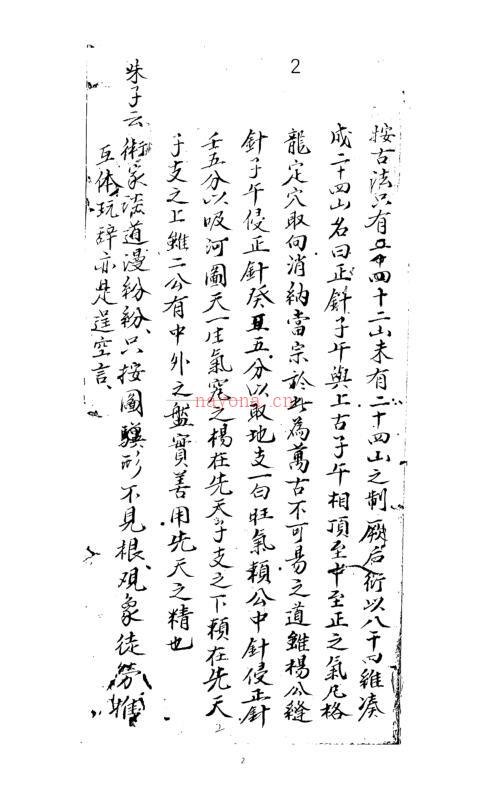 2
按古法只有四十二山未有二十四山之制厥后衍以八干四維湊
成二十四山名曰正針子午與上古子午相頂至中至正之氣凡格
龍定穴取向消納當宗於此為萬古不可易之道雖楊公縫
針子午侵正針癸丑五分以取地支一旬旺氣賴公中針侵正針
壬五分以吸河圖天一生氣究之楊在先天子支之下賴在先天
子支之上雖二公有中外之盤實善用先天之精也
朱子云術家談道漫紛紛只按圖驥形不見根观象徒勞推
互体玩辞亦是逞空言
nayona.cn
2
2